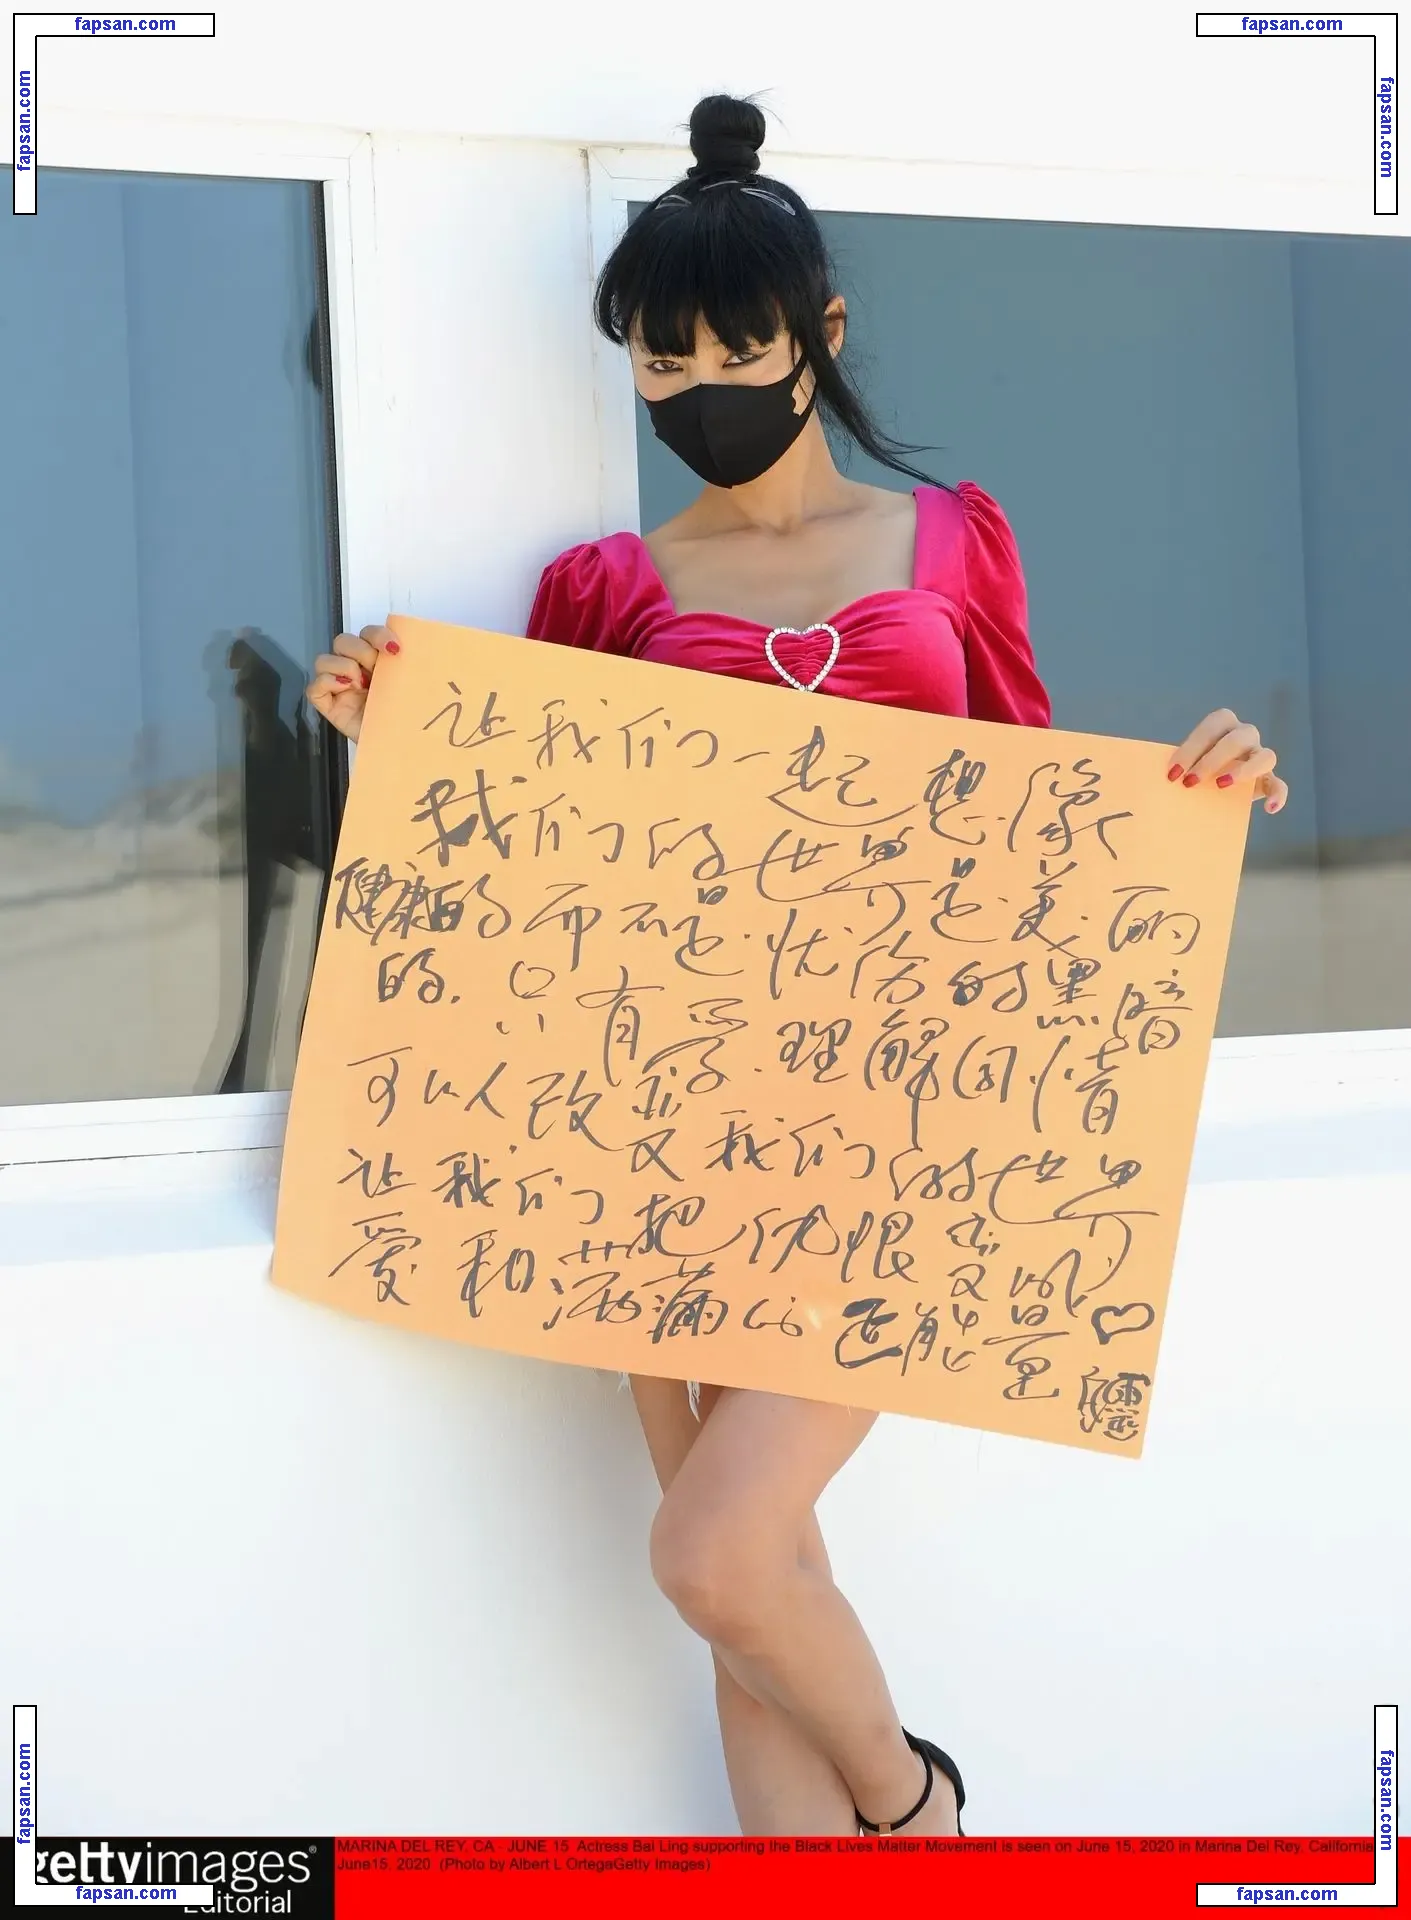 fapsan.com
fapsan.com
fapsan.com
fapsan.com
让我们一起想像
我们的世界是美丽
健康的而不是忧伤的黑暗
的.只有爱.理解同情
可以改变我们的世界
让我们把仇恨变成
爱和充满心正能量♡
fapsan.com
fapsan.com
gettyimages®
Editorial
MARINA DEL REY, CA - JUNE 15 Actress Bai Ling supporting the Black Lives Matter Movement is seen on June 15, 2020 in Marina Del Rey, California
June15, 2020 (Photo by Albert L OrtegaGetty Images)
fapsan.com
fapsan.com